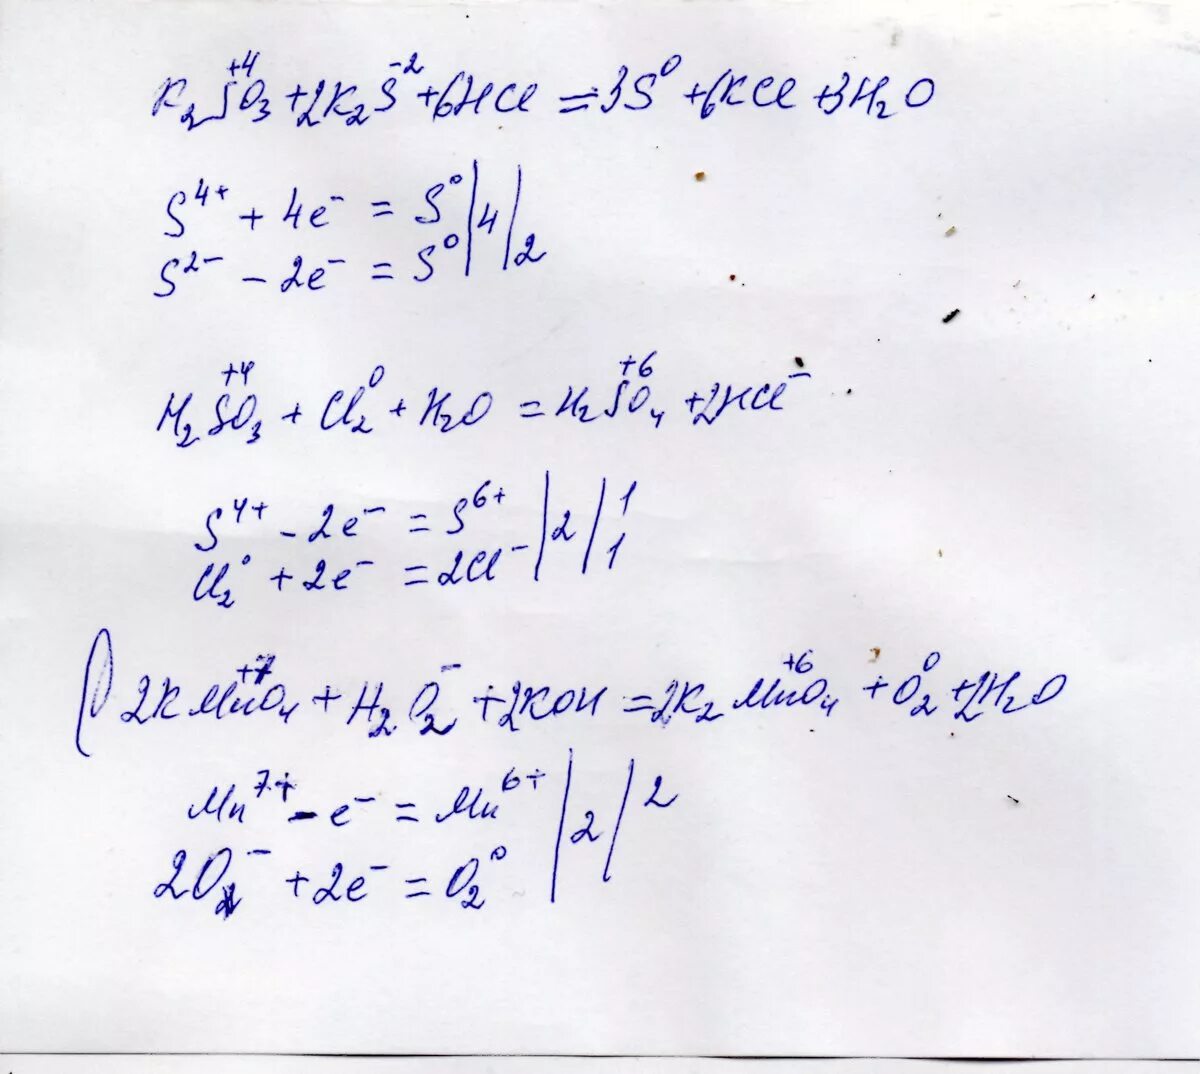 K₂S⁺⁴O₃ + 2K₂S⁻² + 6HCl = 3S⁰ + 6KCl + 3H₂O
S⁴⁺ + 4e⁻ = S⁰ | 4 |
S²⁻ - 2e⁻ = S⁰ | | 2
H₂S⁺⁴O₃ + Cl₂⁰ + H₂O = H₂S⁺⁶O₄ + 2HCl⁻
S⁴⁺ - 2e⁻ = S⁶⁺ | 2 | 1
Cl₂⁰ + 2e⁻ = 2Cl⁻ | | 1
2KMn⁺⁷O₄ + H₂O₂⁻ + 2KOH = 2K₂Mn⁺⁶O₄ + O₂⁰ + 2H₂O
Mn⁷⁺ - e⁻ = Mn⁶⁺ | 2 | 2
2O⁻ + 2e⁻ = O₂⁰